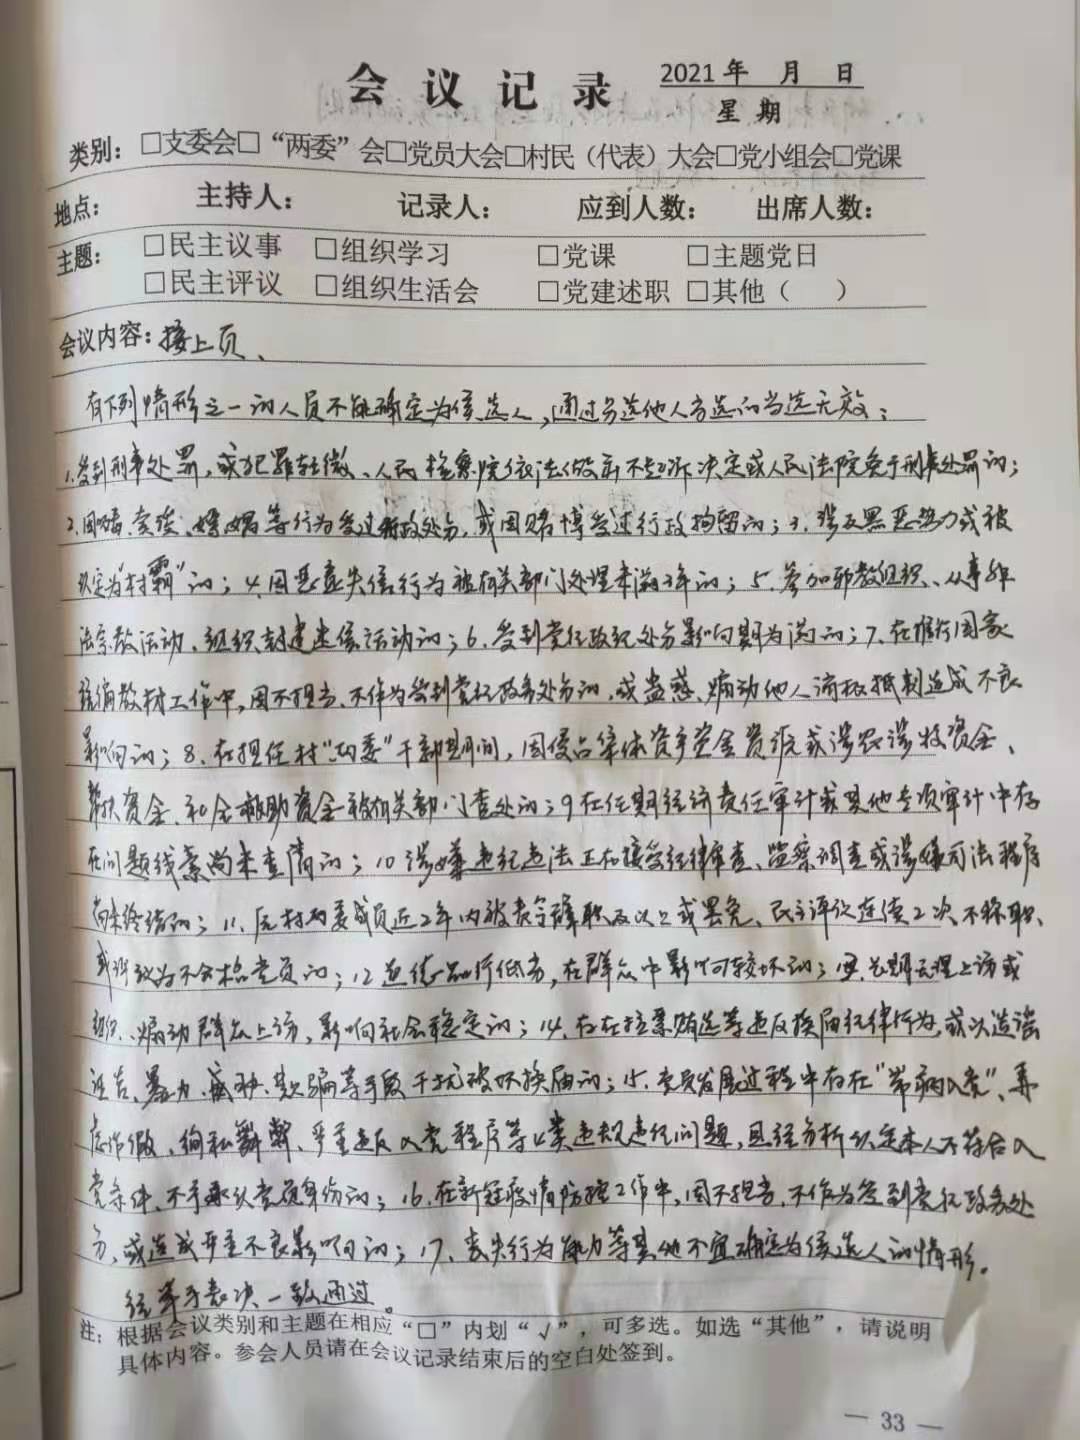 会议记录
2021年 月 日
星期
类别：□支委会□“两委”会□党员大会□村民（代表）大会□党小组会□党课
地点： 主持人： 记录人： 应到人数： 出席人数：
主题： □民主议事 □组织学习 □党课 □主题党日
□民主评议 □组织生活会 □党建述职 □其他（ ）
会议内容：接上页、
有下列情形之一的人员不能确定为候选人，通过另选他人方选的当选无效：
1.受到刑事处罚，或犯罪轻微、人民检察院依法做出不起诉决定或人民法院免于刑事处罚的；
2.因嗜、卖淫、嫖娼等行为受过行政处分，或因赌博受过行政拘留的；3.涉及黑恶势力或被
认定为“村霸”的；4.因恶意失信行为被有关部门处理未满3年的；5.参加邪教组织、从事非
法宗教活动、组织封建迷信活动的；6.受到党纪政纪处分影响期为满的；7.在推行国家
统编教材工作中，因不担当、不作为受到党纪政务处分的，或蛊惑、煽动他人消极抵制造成不良
影响的；8.在担任村“两委”干部期间，因侵占集体资产资金资源或涉农涉牧资金、
帮扶资金、社会救助资金被有关部门查处的；9在任期经济责任审计或其他专项审计中存
在问题线索尚未查清的；10涉嫌违纪违法正在接受纪律审查、监察调查或涉嫌司法程序
尚未终结的；11.原村两委成员近2年内被责令辞职及以上或罢免、民主评议连续2次不称职、
或评议为不合格党员的；12道德品行低劣，在群众中影响较坏的；13.长期无理上访或
组织、煽动群众上访，影响社会稳定的；14.存在拉票贿选等违反换届纪律行为，或以造谣
诬告、暴力、威胁、欺骗等手段干扰破坏换届的；15.党员发展过程中存在“带病入党”、弄
虚作假、徇私舞弊、严重违反入党程序等4类违规违纪问题，且经分析认定本人不符合入
党条件、不予承认党员身份的；16.在新冠疫情防控工作中，因不担当、不作为受到党纪政务处
分，或造成严重不良影响的；17、丧失行为能力等其他不宜确定为候选人的情形。
经举手表决一致通过。
注：根据会议类别和主题在相应“□”内划“√”，可多选。如选“其他”，请说明
具体内容。参会人员请在会议记录结束后的空白处签到。
— 33 —